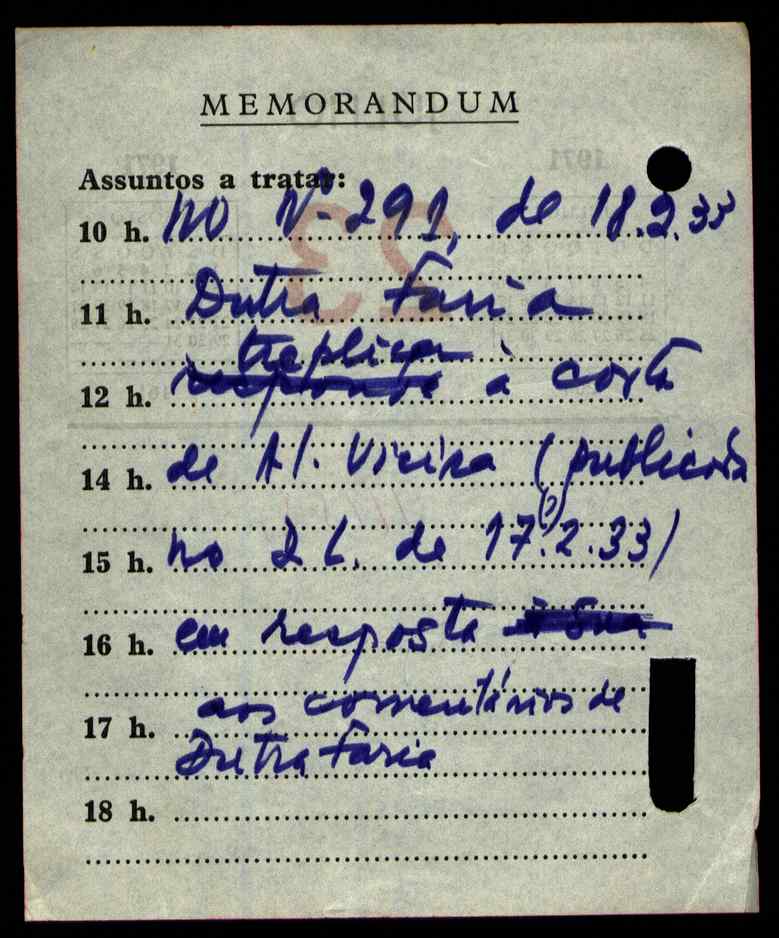 MEMORANDUM
Assuntos a tratar:
10 h. no Nº 291, de 18.2.33
11 h. Dutra Faria
treplica
12 h. responde à carta
14 h. de Al. Vieira (publicada
(?)
15 h. no D L. de 17.2.33)
16 h. em resposta à sua
17 h. aos comentários de
Dutra Faria
18 h.
1971
1971
23